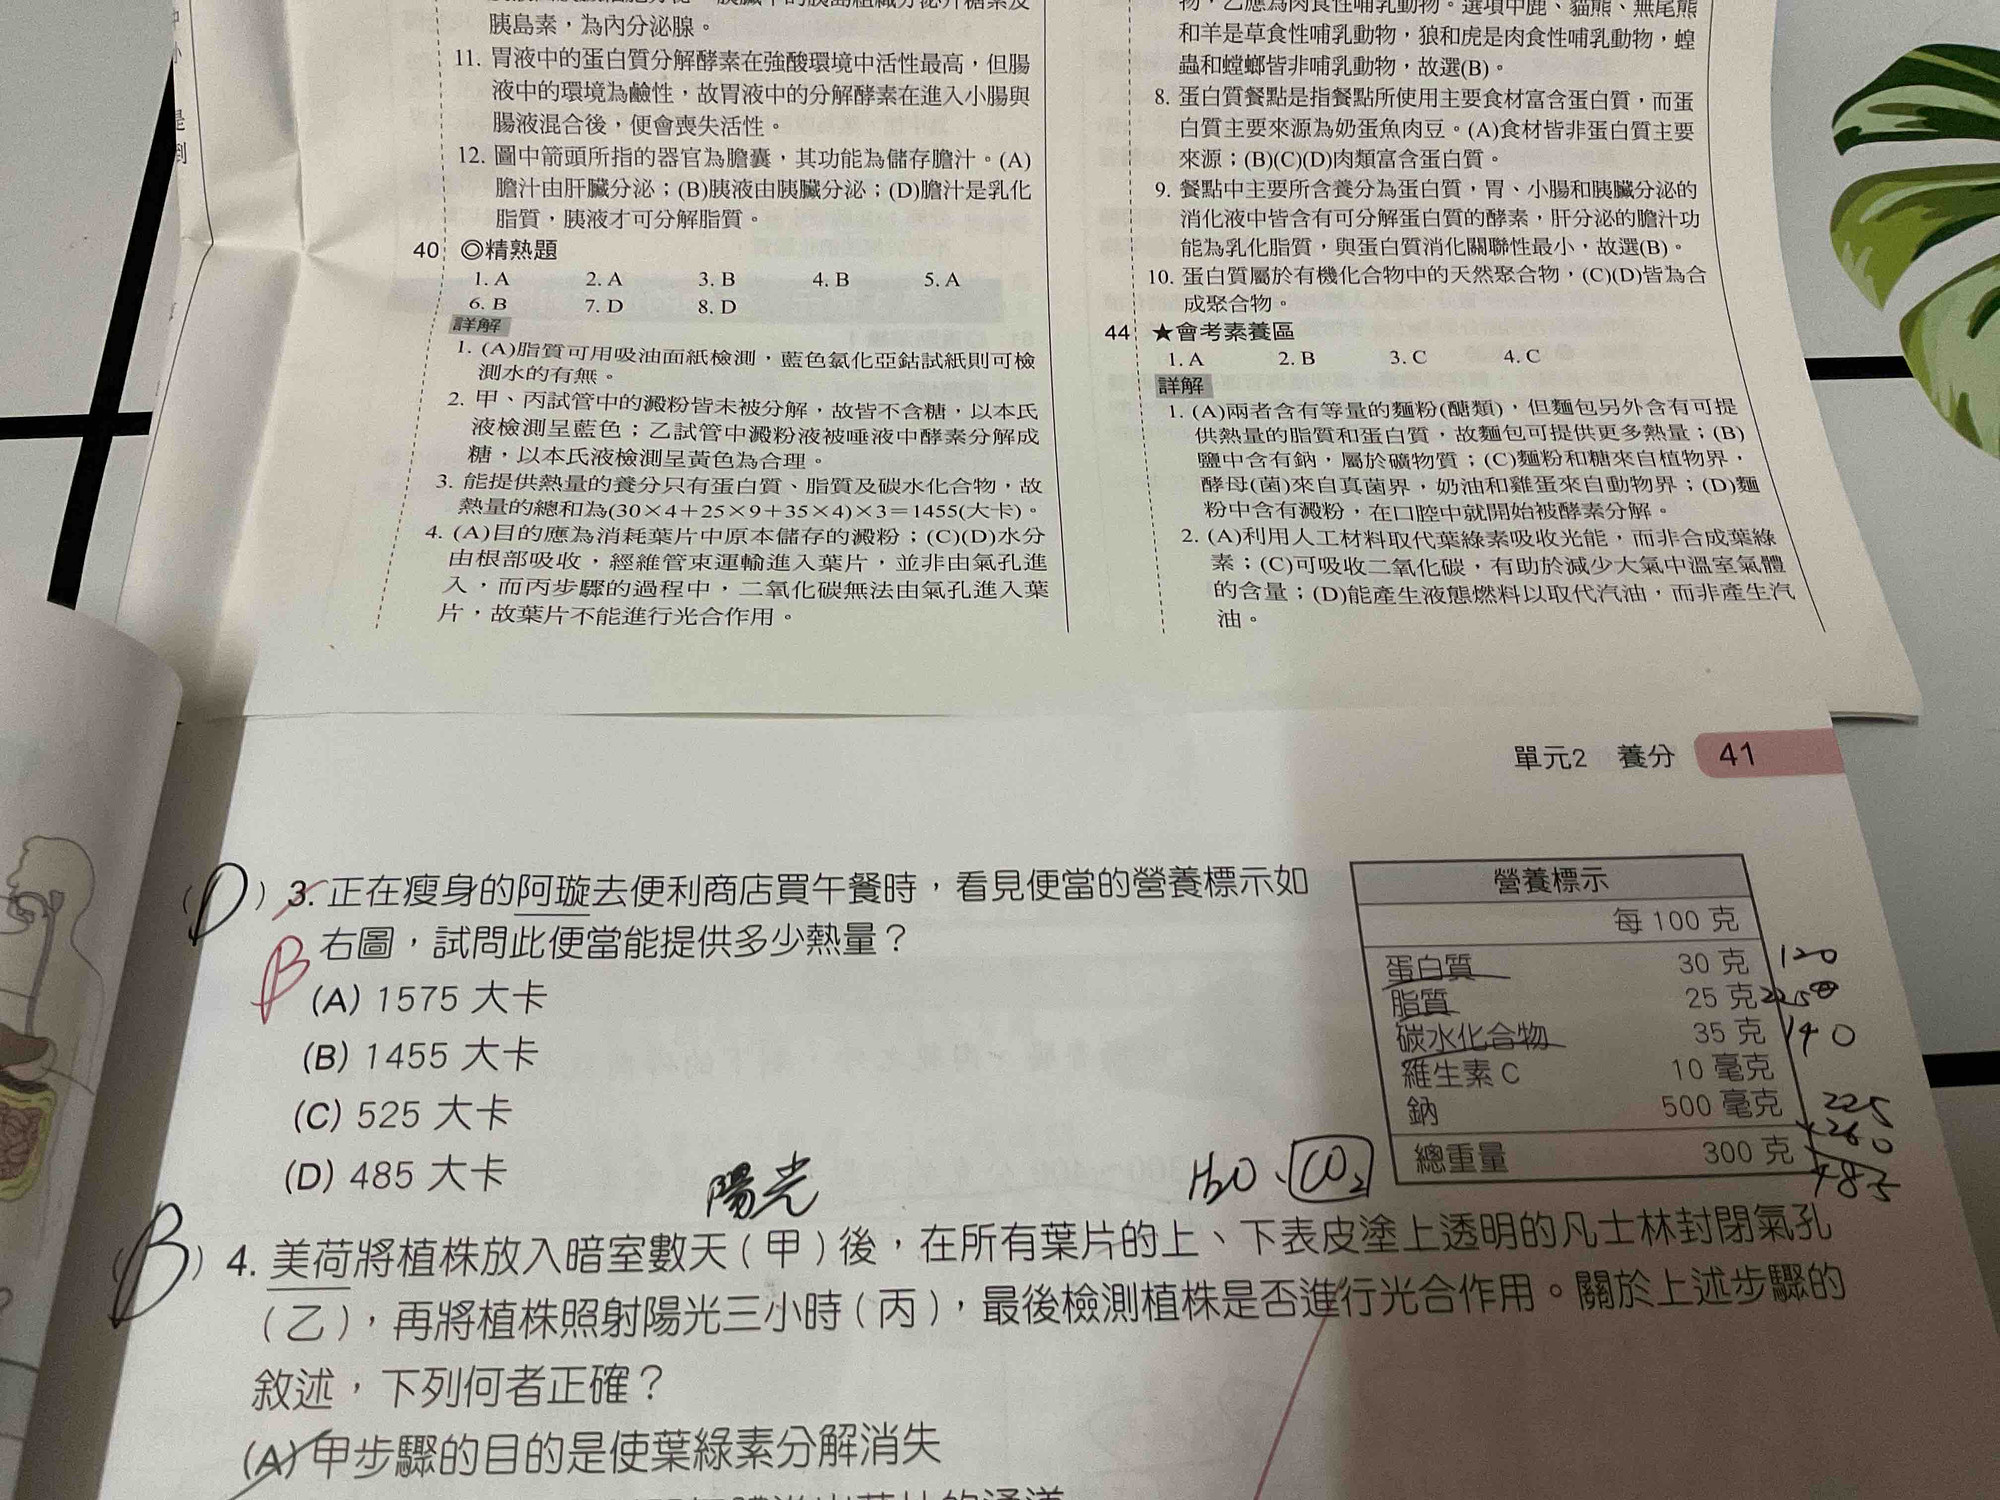 胰島素，為內分泌腺。
11. 胃液中的蛋白質分解酵素在強酸環境中活性最高，但腸
液中的環境為鹼性，故胃液中的分解酵素在進入小腸與
腸液混合後，便會喪失活性。
12. 圖中箭頭所指的器官為膽囊，其功能為儲存膽汁。(A)
膽汁由肝臟分泌；(B)胰液由胰臟分泌；(D)膽汁是乳化
脂質，胰液才可分解脂質。
40 ◎精熟題
1. A 2. A 3. B 4. B 5. A
6. B 7. D 8. D
詳解
1. (A)脂質可用吸油面紙檢測，藍色氯化亞鈷試紙則可檢
測水的有無。
2. 甲、丙試管中的澱粉皆未被分解，故皆不含糖，以本氏
液檢測呈藍色；乙試管中澱粉液被唾液中酵素分解成
糖，以本氏液檢測呈黃色為合理。
3. 能提供熱量的養分只有蛋白質、脂質及碳水化合物，故
熱量的總和為(30×4＋25×9＋35×4)×3＝1455(大卡)。
4. (A)目的應為消耗葉片中原本儲存的澱粉；(C)(D)水分
由根部吸收，經維管束運輸進入葉片，並非由氣孔進
入，而丙步驟的過程中，二氧化碳無法由氣孔進入葉
片，故葉片不能進行光合作用。
物，乙應為肉食性哺乳動物。選項中鹿、貓熊、無尾熊
和羊是草食性哺乳動物，狼和虎是肉食性哺乳動物，蝗
蟲和螳螂皆非哺乳動物，故選(B)。
8. 蛋白質餐點是指餐點所使用主要食材富含蛋白質，而蛋
白質主要來源為奶蛋魚肉豆。(A)食材皆非蛋白質主要
來源；(B)(C)(D)肉類富含蛋白質。
9. 餐點中主要所含養分為蛋白質，胃、小腸和胰臟分泌的
消化液中皆含有可分解蛋白質的酵素，肝分泌的膽汁功
能為乳化脂質，與蛋白質消化關聯性最小，故選(B)。
10. 蛋白質屬於有機化合物中的天然聚合物，(C)(D)皆為合
成聚合物。
44 ★會考素養區
1. A 2. B 3. C 4. C
詳解
1. (A)兩者含有等量的麵粉(醣類)，但麵包另外含有可提
供熱量的脂質和蛋白質，故麵包可提供更多熱量；(B)
鹽中含有鈉，屬於礦物質；(C)麵粉和糖來自植物界，
酵母(菌)來自真菌界，奶油和雞蛋來自動物界；(D)麵
粉中含有澱粉，在口腔中就開始被酵素分解。
2. (A)利用人工材料取代葉綠素吸收光能，而非合成葉綠
素；(C)可吸收二氧化碳，有助於減少大氣中溫室氣體
的含量；(D)能產生液態燃料以取代汽油，而非產生汽
油。
單元2 養分 41
(D) 3. 正在瘦身的阿璇去便利商店買午餐時，看見便當的營養標示如
B 右圖，試問此便當能提供多少熱量？
(A) 1575 大卡
(B) 1455 大卡
(C) 525 大卡
(D) 485 大卡
營養標示
每 100 克
蛋白質 30 克 120
脂質 25 克 225
碳水化合物 35 克 140
維生素 C 10 毫克
鈉 500 毫克 225
260
總重量 300 克 485
陽光 H2O、CO2
(B) 4. 美荷將植株放入暗室數天（甲）後，在所有葉片的上、下表皮塗上透明的凡士林封閉氣孔
（乙），再將植株照射陽光三小時（丙），最後檢測植株是否進行光合作用。關於上述步驟的
敘述，下列何者正確？
(A) 甲步驟的目的是使葉綠素分解消失